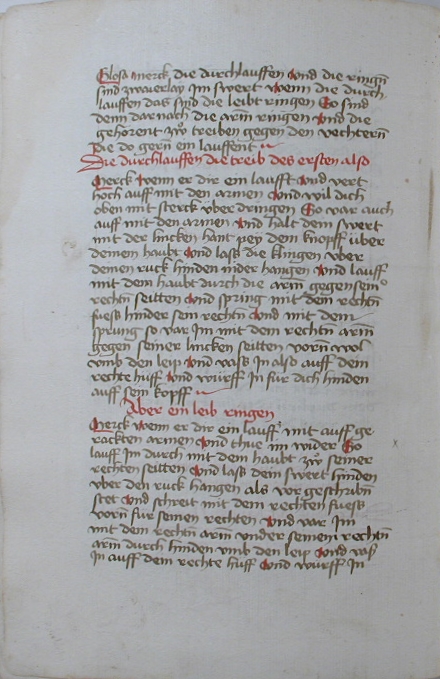 Glosa merck die durchlauffen vnd die ringñ
sind zwaierlay Im swert wenn die durch
lauffen das sind die leibt ringen So sind
denn darnach die arm ringen vnd die
gehorent zw treiben gegen den vechtern
die do gern ein lauffent
Die durchlauffen die treib des ersten also
Merck wenn er dir ein laufft vnd vert
hoch auff mit den armen vnd wil dich
oben mit sterck vber dringen So var auch
auff mit den armen vnd halt dein swert
mit der lincken hant pey dem knopff über
deinem haubt vnd lasß die klingen vber
deinen ruck hinden nider hangen vnd lauff
mit dem haubt durch die arm gegen seiner
rechtñ seitten vnd spring mit dem rechtñ
fuesß hinder sein rechtñ vnd mit dem
sprung so var Im mit dem rechtñ arm
gegen seiner lincken seitten vorñ wol
vmb den leip vnd vasß In also auff dein
rechte huff vnd würff In für dich hinden
auff sein kopff
Aber ein leib ringen
Merck wenn er dir ein laufft mit auff ge
rackten armen vnd thue im wider So
lauff Im durch mit dem haubt zw seiner
rechten seitten vnd lasß dein swert hinden
vber den ruck hangen als vor geschribñ
stet vnd schreit mit dem rechten fuesß
vorñ für seinen rechten vnd var Im
mit dem rechtñ arm vnder seinem rechtñ
arm durch hinden vmb den leip vnd vasß
In auff dein rechte huff vnd würff In